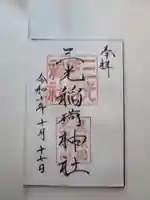 奉拝
三光稲荷神社
令和六年十月十七日